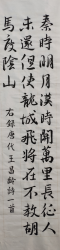 秦時明月漢時關萬里長征人
未還但使龍城飛將在不教胡
馬度陰山
右録唐代王昌齡詩一首